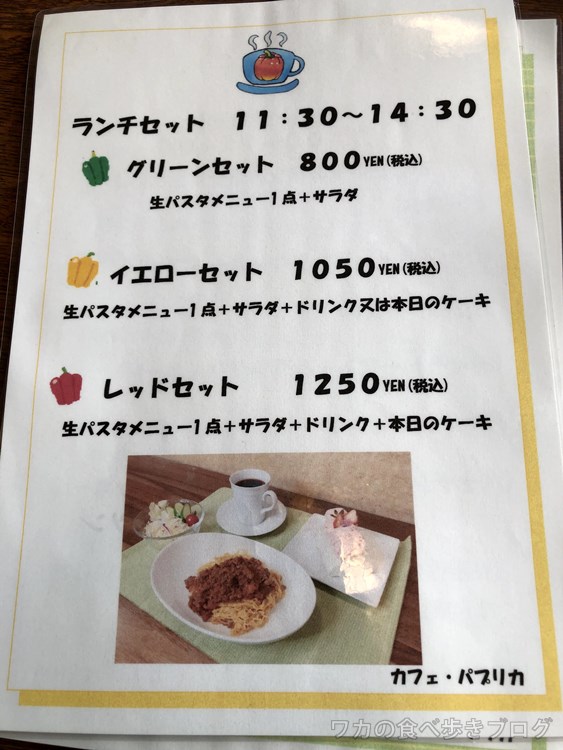 ランチセット 11:30～14:30
グリーンセット 800YEN(税込)
生パスタメニュー1点+サラダ
イエローセット 1050YEN(税込)
生パスタメニュー1点+サラダ+ドリンク又は本日のケーキ
レッドセット 1250YEN(税込)
生パスタメニュー1点+サラダ+ドリンク+本日のケーキ
カフェ・パプリカ
ワカの食べ歩きブログ